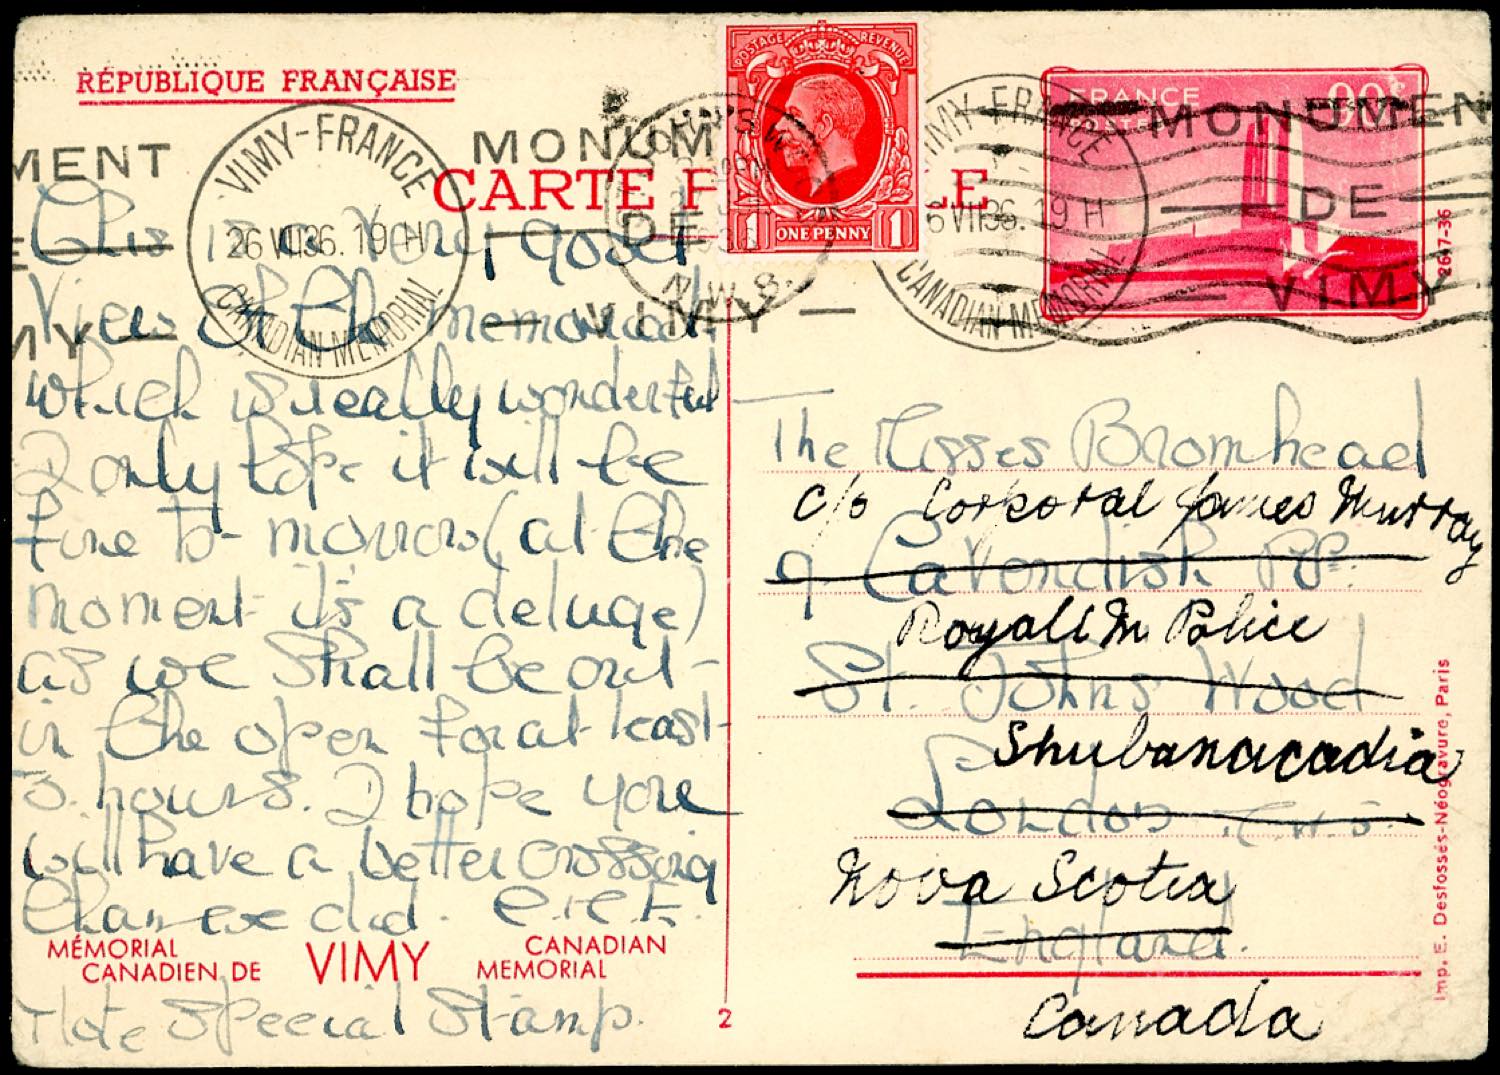 RÉPUBLIQUE FRANÇAISE
CARTE P LE
POSTAGE REVENUE
1 ONE PENNY 1
FRANCE
90c
POSTES
VIMY-FRANCE
26 VII 36. 19 H
CANADIAN-MEMORIAL
MONUM
DE
VIMY
MENT
MY
N.W.8.
VIMY-FRANCE
6 VII 36. 19 H
CANADIAN-MEMORIAL
MONUMEN
DE
VIMY
This is a very good
View of the memorial
which is really wonderful
I only hope it will be
fine to-morrow (at the
moment it's a deluge)
as we shall be out
in the open for at least
5 hours. I hope you
will have a better crossing
than we did.
MÉMORIAL
CANADIEN DE
VIMY
CANADIAN
MEMORIAL
Note Special Stamp.
2
The Misses Bromhead
c/o Corporal James Murray
9 Cavendish
Royall M Police
St. Johns Wood
Shubanacadia
London N.W.8.
Nova Scotia
England.
Canada
2647-36
Imp. E. Desfossés-Néogravure, Paris